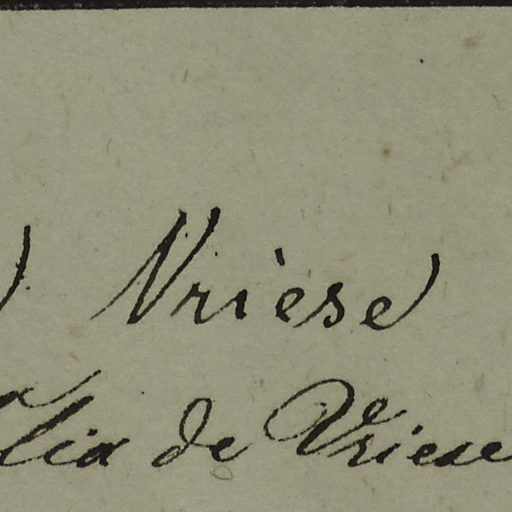 ) Vriese
lia de Vriese